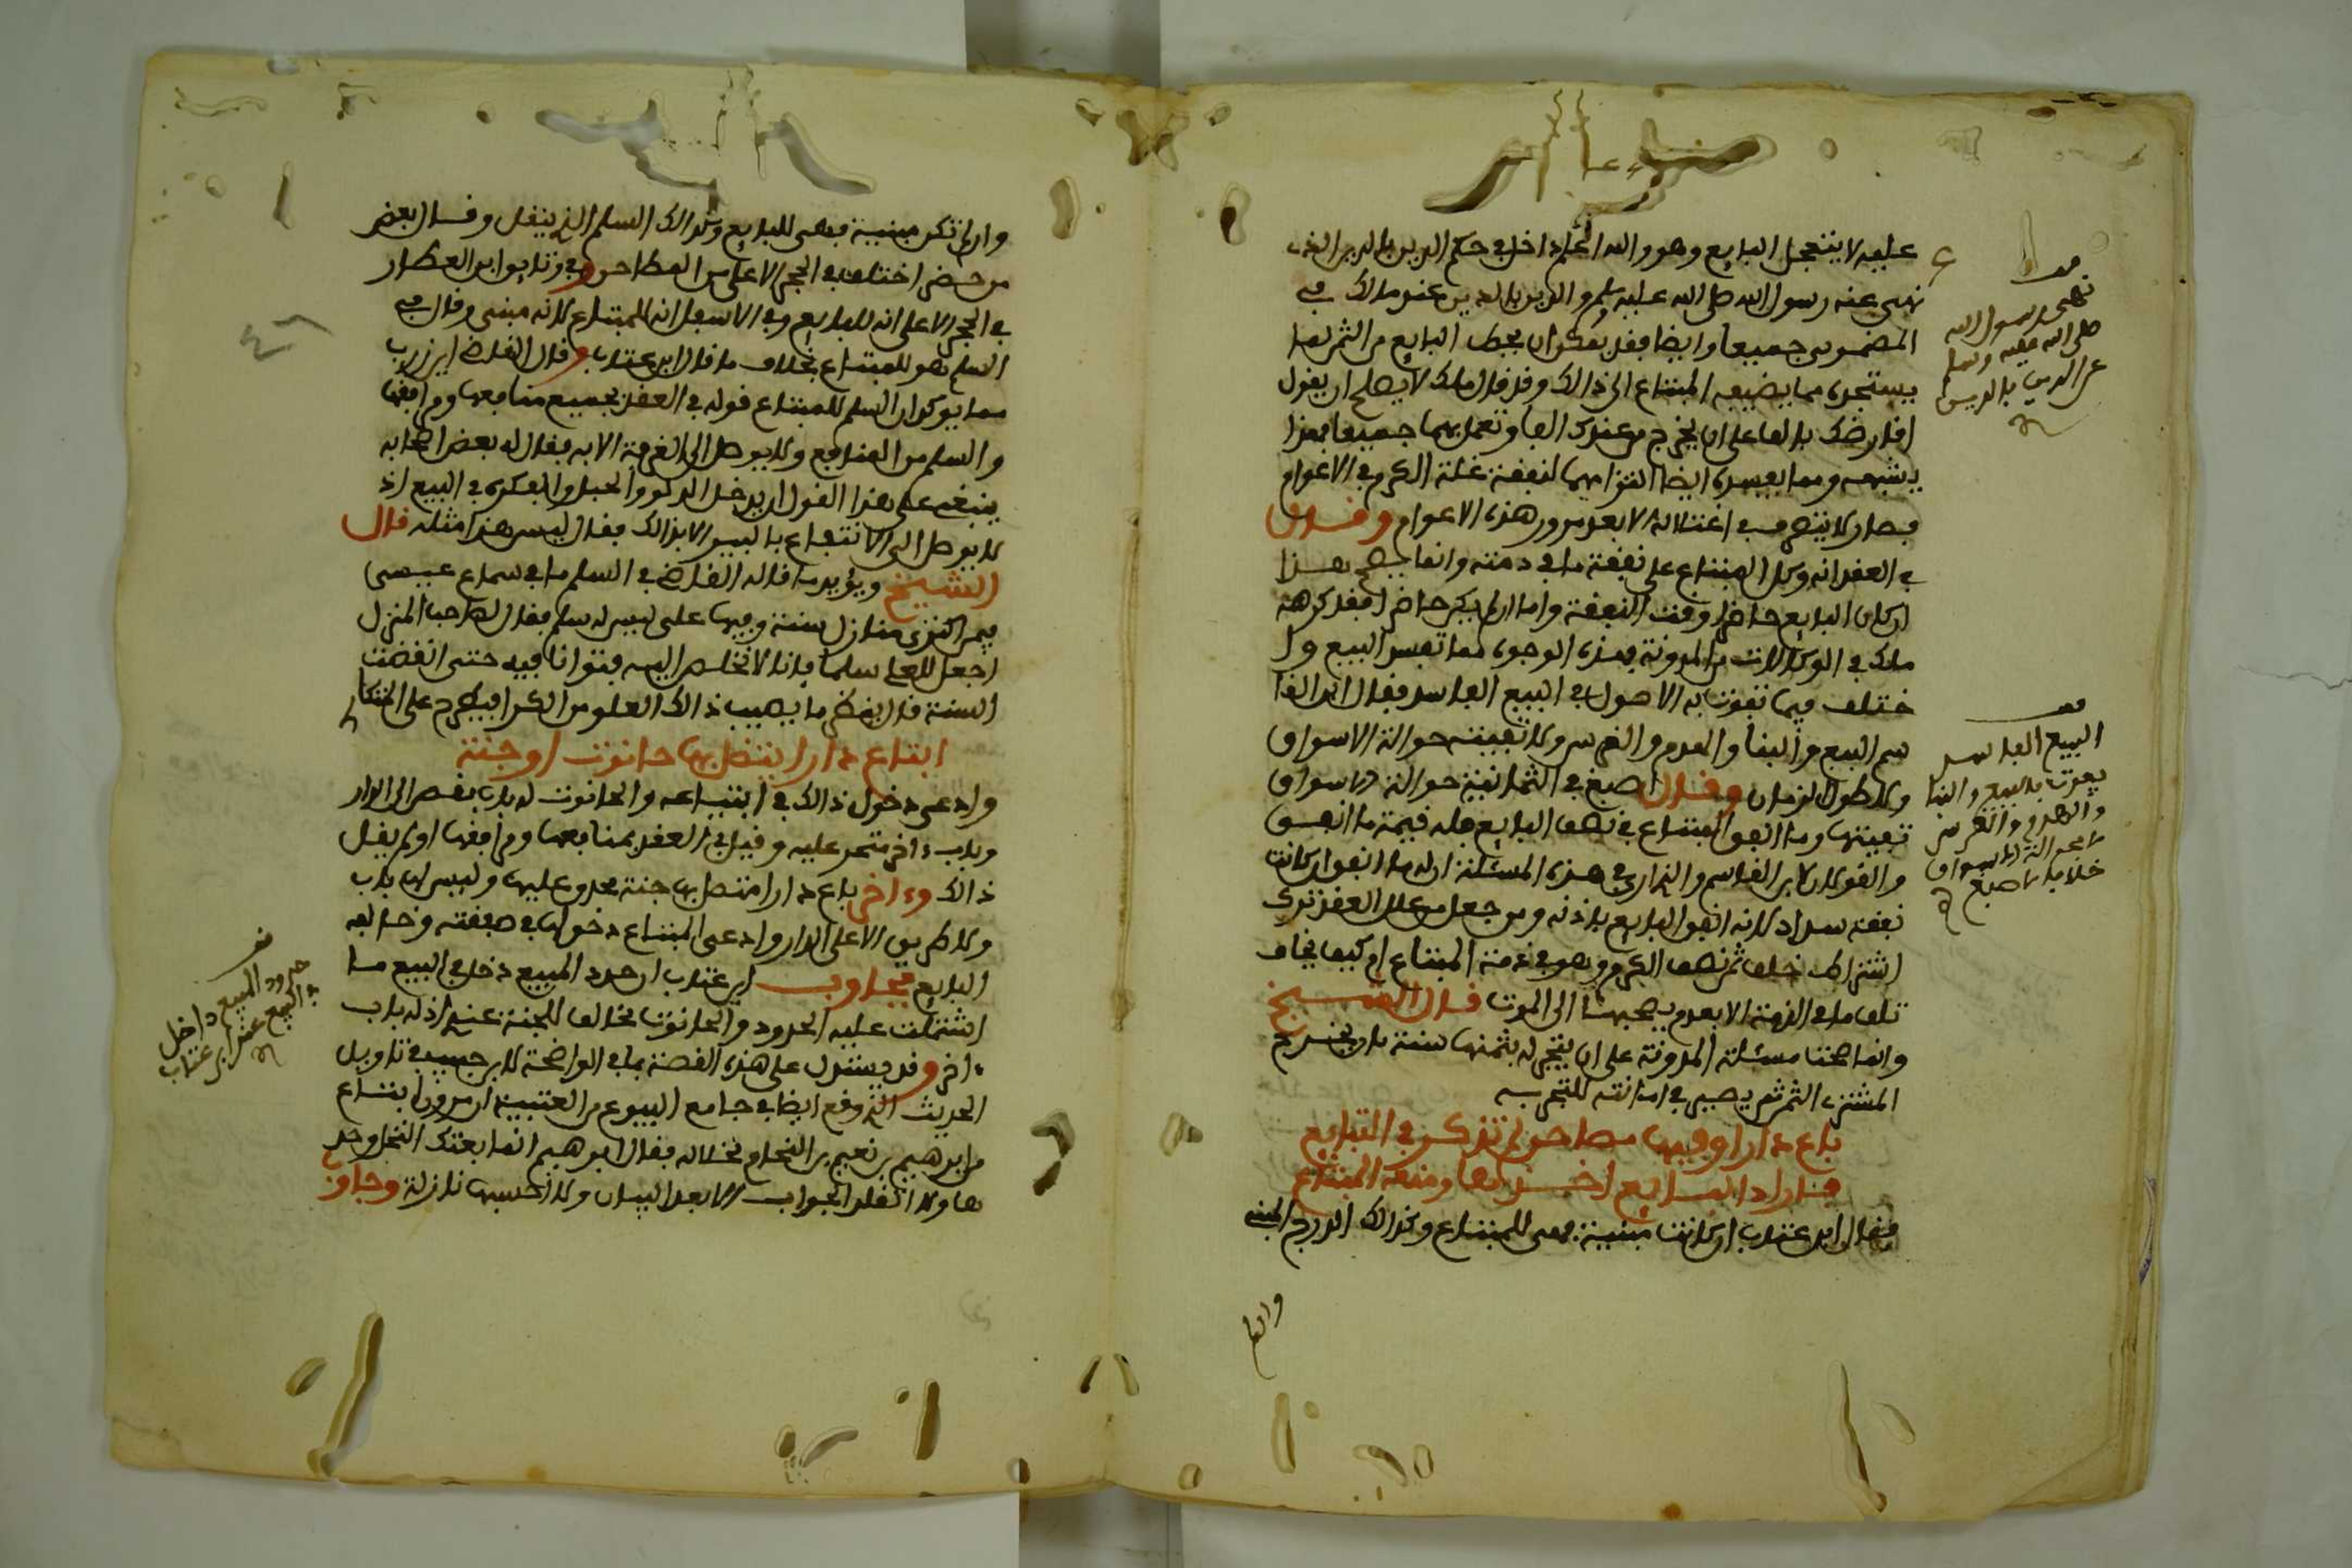 عليه لا يتعجل البايع وهو والله أعلم داخل في حكم الدين بالدين الذي
نهى عنه رسول الله صلى الله عليه وسلم والدين بالدين عند مالك في
المضمون جميعا وايضا فقد يمكن ان يعطى البايع من الثمن ما
يستجره مما يضيعه المبتاع الى ذالك وقد قال مالك لا يصلح ان يقول
اقارضك بالف على ان تخرج من عندك الفا وتعمل بهما جميعا فهذا
يشبهه ومما يفسده ايضا التزامهما لنفقة غلة الكرم في الاعوام
فصار لا يتصرف في اغتلاله الا بعد مرور هذه الاعوام وقدلاق
في العقد انه وكل المبتاع على نفقة ما في ذمته وانما يصح هذا
ان كان البايع حاضرا وقت النفقة واما ان لم يكن حاضرا فقد كرهه
مالك في الوكالات من المدونة فهذه الوجوه مما تفسد البيع وا
ختلف فيما تفوت به الاصول في البيع الفاسد فقال ابن القا
سم البيع والبنا والهدم والغرس ولا تفيته حوالة الاسواق
ولا طول الزمان وقال اصبغ في الثمانية حوالة الاسواق
تفيتها وما انفق المبتاع في نصف البايع فله قيمة ما انفق
والقولان لابن القاسم والذي ارى في هذه المسئلة ان له ما انفق ان كانت
نفقته سداد لانه انفق البايع باذنه ومن جعل من علل العقد ترك
اشتراك خلف ثمن نصف الكرم وهو في ذمة المبتاع ام كيف يخاف
تلف ما في الذمة الا بعدم يصحبها الى الموت قال الشيخ
وانما صحت مسئلة المدونة على ان يتجر له بثمنها سنة بان يخرج
المشتري الثمن ثم يصير في امانته للتجر به
باع دارا وفيها مطاحن لم تذكر في التبايع
فاراد البايع اخذها ومنعه المبتاع
فقال ابن عتاب ان كانت مبنية فهي للمبتاع وكذالك الدرج المبني
وان لم
نهى رسول الله
صلى الله عليه وسلم
عن الدين بالدين
البيع الفاسد
يفوت بالبيع والبنا
والهدم والغرس
لا بحوالة الاسواق
خلافا لاصبغ
وان لم تكن مبنية فهي للبايع وكذالك السلم الذي ينقل وقال بعض
من حضر اختلف في الحجر الاعلى من المطاحن وفي وثايق ابن العطار
في الحجر الاعلى انه للبايع وفي الاسفل انه للمبتاع لانه مبني وقال في
السلم هو للمبتاع بخلاف ما قال ابن عتاب وقال القاضي ابن زرب
مما يوكد ان السلم للمبتاع قوله في العقد بجميع منافعها ومرافقها
والسلم من المنافع ولا يوصل الى الغرفة الا به فقال له بعض اصحابه
ينبغي على هذا القول ان يدخل الدلو والحبل والبكرة في البيع اذ
لا يوصل الى الانتفاع بالبير الا بذالك فقال ليس هذا مثله قال
الشيخ ويؤيد ما قاله القاضي في السلم ما في سماع عيسى
فيمن اكترى منازل سنة وفيها علي ليس له سلم فقال لصاحب المنزل
اجعل للعلي سلما فانا لا نخلص اليه فتوانا فيه حتى انقضت
السنة قال ينظر ما يصيب ذالك العلو من الكرا فيطرح على المتكا
ابتاع دارا يتصل بها حانوت او جنة
وادعى دخول ذالك في ابتياعه والحانوت له باب يفضى الى الدار
وباب ءاخر متجر عليه وقيل في العقد بمنافعها ومرافقها او لم يقل
ذالك وءاخر باع دارا متصل بها جنة محدق عليها وليس لها باب
ولا طريق الا على الدار وادعى المبتاع دخولها في صفقته وخالفه
البايع فجاوب ابن عتاب ان حدد المبيع دخل في البيع ما
اشتملت عليه الحدود والحانوت مخالف للجنة عندي اذ له باب
ءاخر وقد يستدل على هذه القصة بما في الواضحة لابن حبيب في تاويل
الحديث الذي وقع ايضا في جامع البيوع من العتبية ان مروان ابتاع
من ابرهيم بن نعيم بن النحام نخلا له فقال ابرهيم انما بعتك النخل وحد
ها ولا انقلد الجواب الا بعد البيان ولا احسبها نازلة وجاوب
حدود المبيع داخل
في البيع عند ابن عتاب